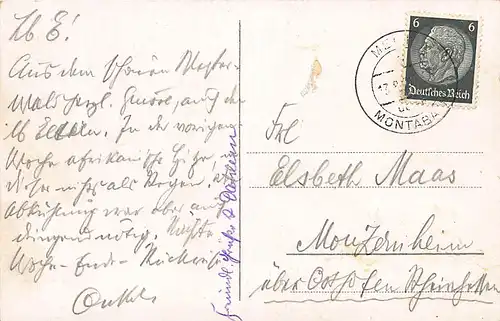 Lb E!
Aus dem schönen Wester-
wald herzl. Grüsse, auch der
lb Eltern. In der vorigen
Woche afrikanische Hitze
diese nichts als Regen.
Abkühlung war aber auch
dringend nötig. Nächste
Woche-Ende-Rückreise
Onkel
freundl Grüße
6 6
Deutsches Reich
MONTABA
Frl
Elsbeth Maas
Monzernheim
über Osthofen Rheinhessen